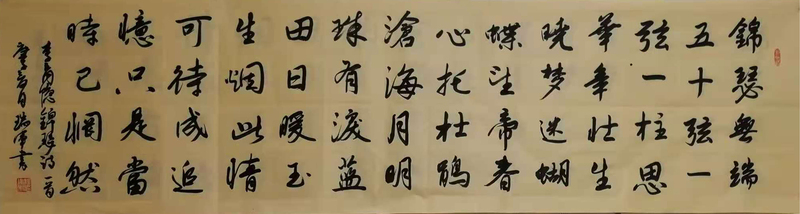 錦瑟無端
五十弦一
弦一柱思
華年壮生
曉梦迷蝴
蝶望帝春
心托杜鵑
滄海月明
珠有淚蓝
田日暖玉
生烟此情
可待成追
憶只是當
時已惘然
李商隐錦瑟诗一首
書